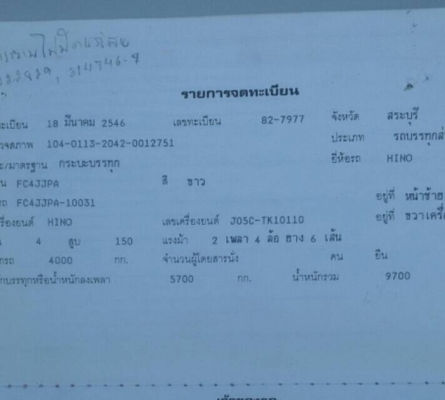 รายการจดทะเบียน
ทะเบียน 18 มีนาคม 2546 เลขทะเบียน 82-7977 จังหวัด สระบุรี
104-0113-2042-0012751 ประเภท รถบรรทุกส
มาตรฐาน กระบะบรรทุก ยี่ห้อรถ HINO
FC4JJPA สี ขาว
FC4JJPA-10031 อยู่ที่ หน้าซ้าย
เครื่องยนต์ HINO เลขเครื่องยนต์ J05C-TK10110 อยู่ที่ ขวาเครื่
4 สูบ 150 แรงม้า 2 เพลา 4 ล้อ ยาง 6 เส้น
4000 กก. จำนวนผู้โดยสารนั่ง คน ยืน
บรรทุกหรือน้ำหนักลงเพลา 5700 กก. น้ำหนักรวม 9700